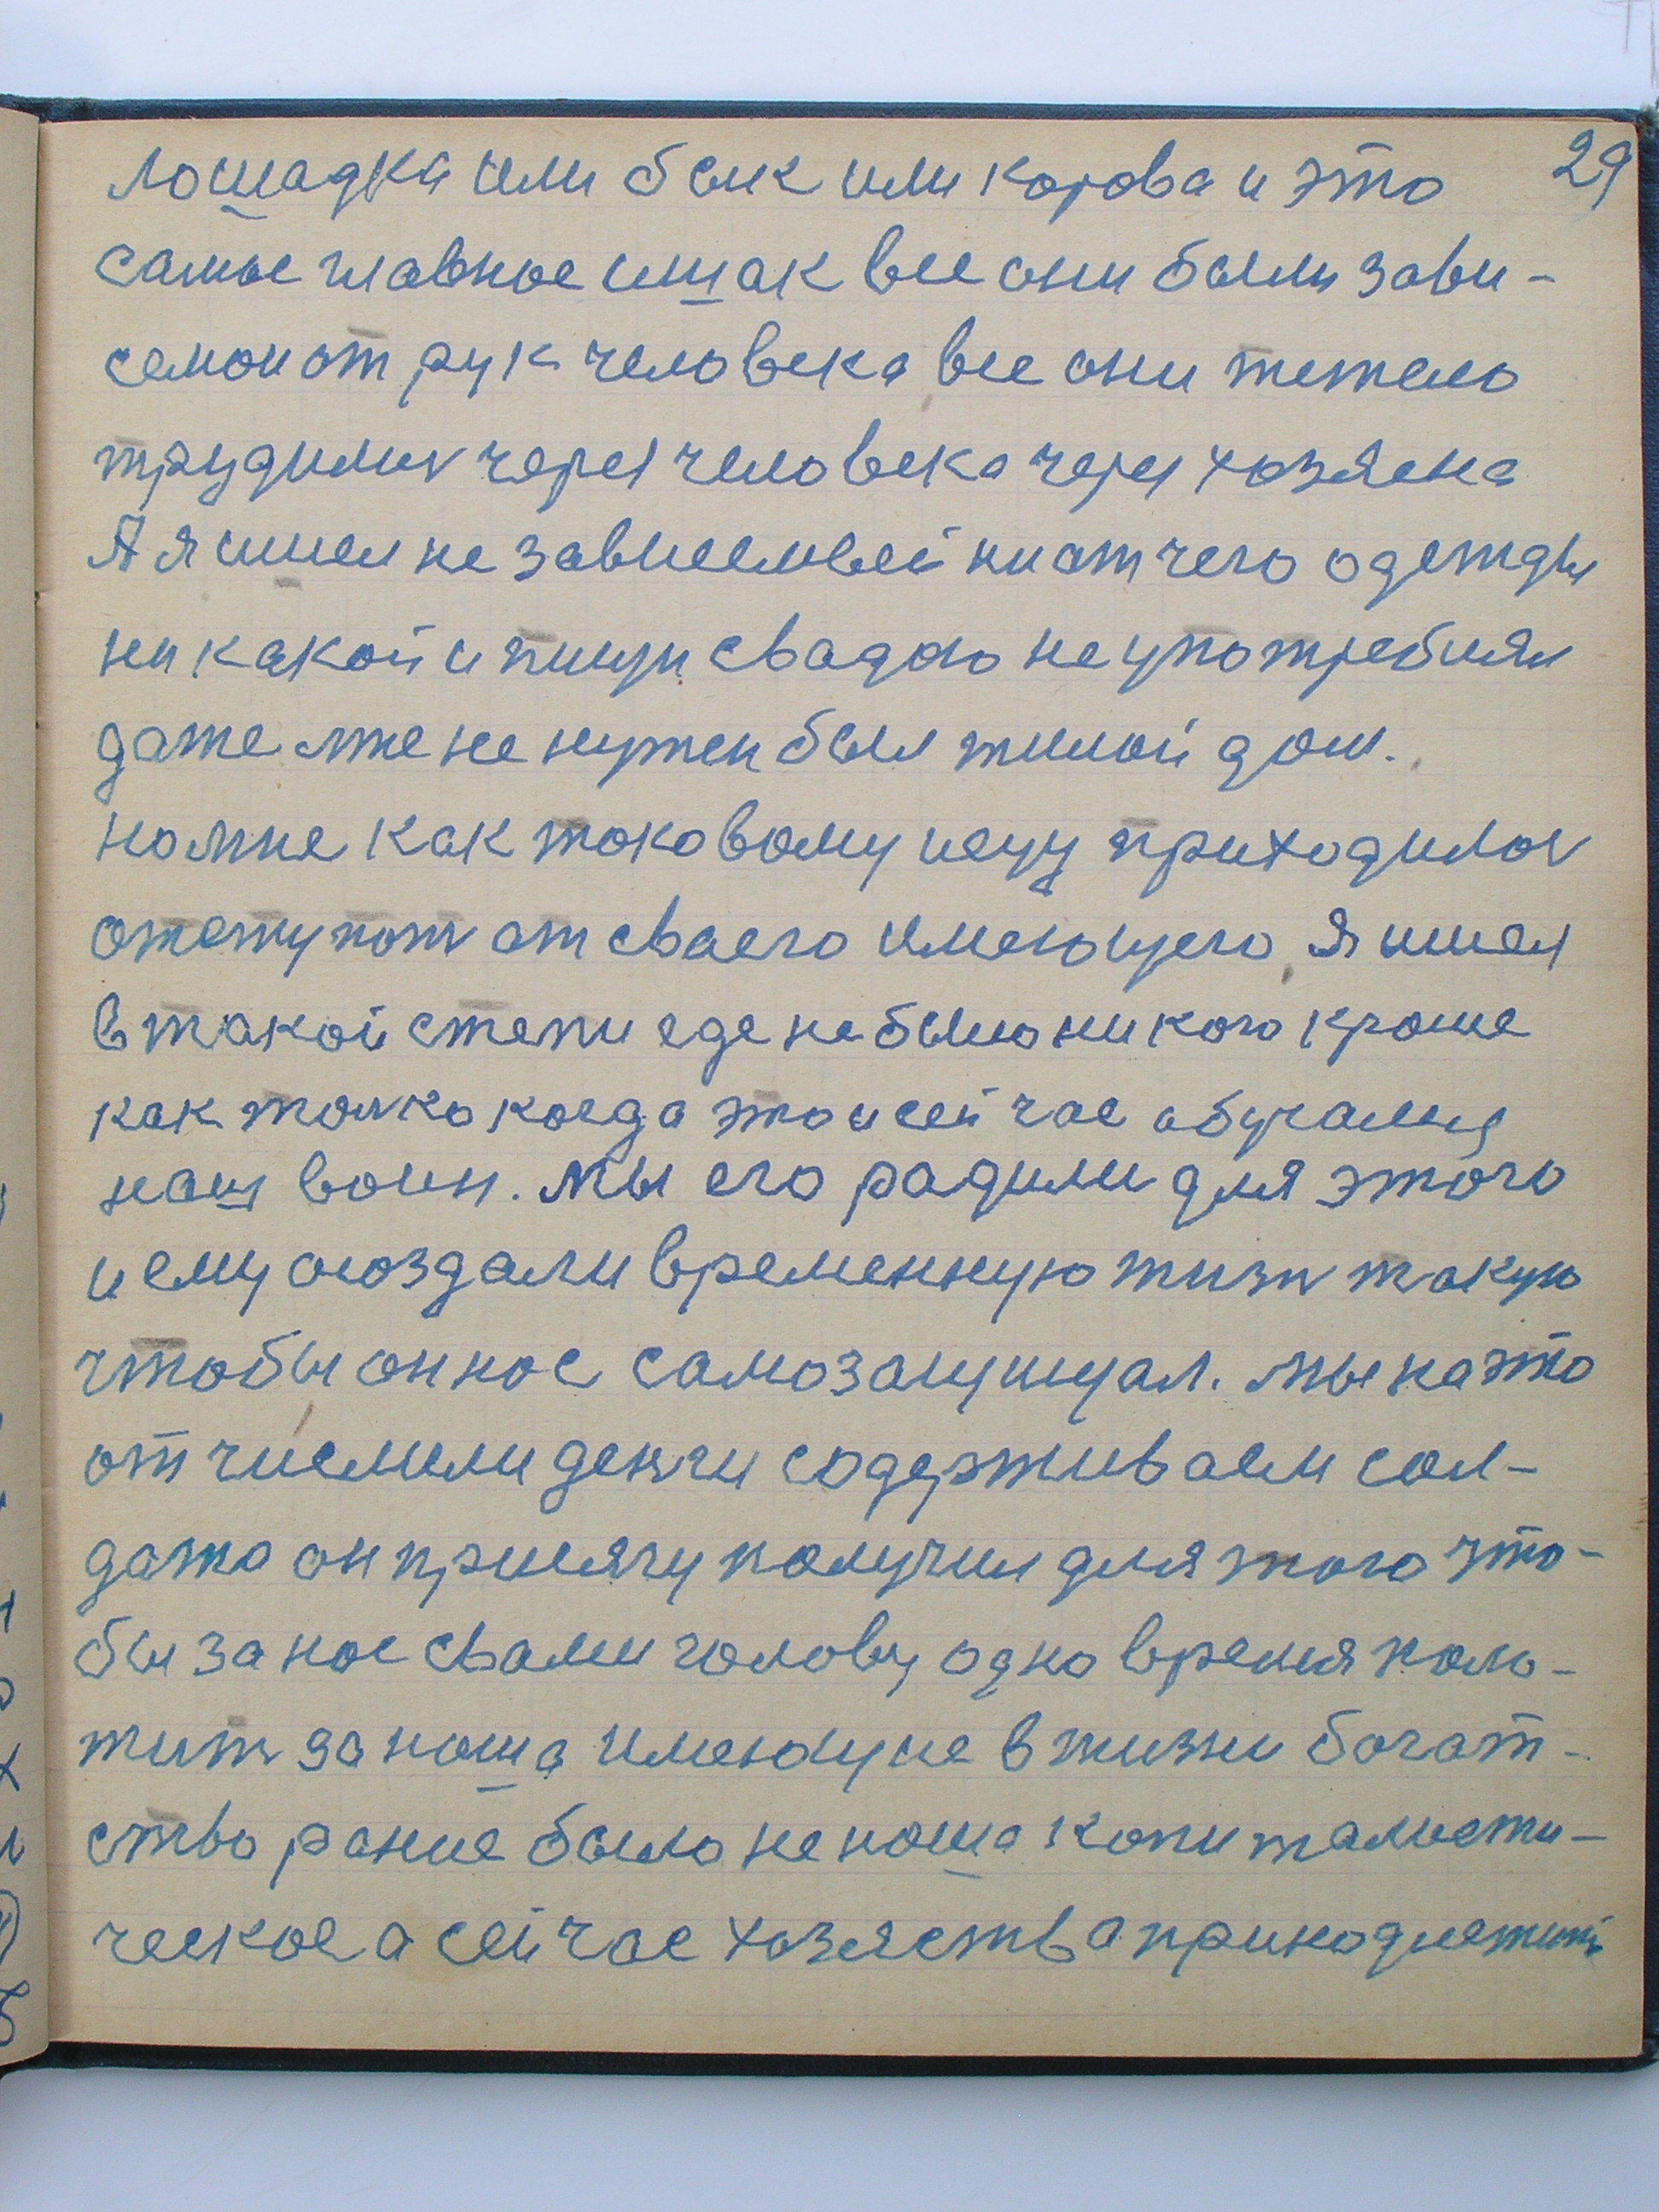 29
лошадка или бык или корова и это
самое главное ишак все они были зави-
семои от рук человека все они тежело
трудилис через человека через хозяена
А я ишел не зависемвей ни от чего одежды
ни какой и пищи свадою не употреблял
даже мне не нужен был жилой дом.
но мне как таковому исцу приходилос
отступат от сваего имеющего. Я ишел
в такой степи где не было никого кроме
как толко когда это и сейчас обучался
наш воин. Мы его радили для этого
и ему созздали временную жизн такую
чтобы он нас самозащищал. мы на это
отчислили денги содерживаем сол-
дата он присягу получил для того что-
бы за нас сваею голову одно время поло-
жит за наша имеющие в жизни богат-
ство рание было не наша капиталисти-
ческое а сейчас хозяества